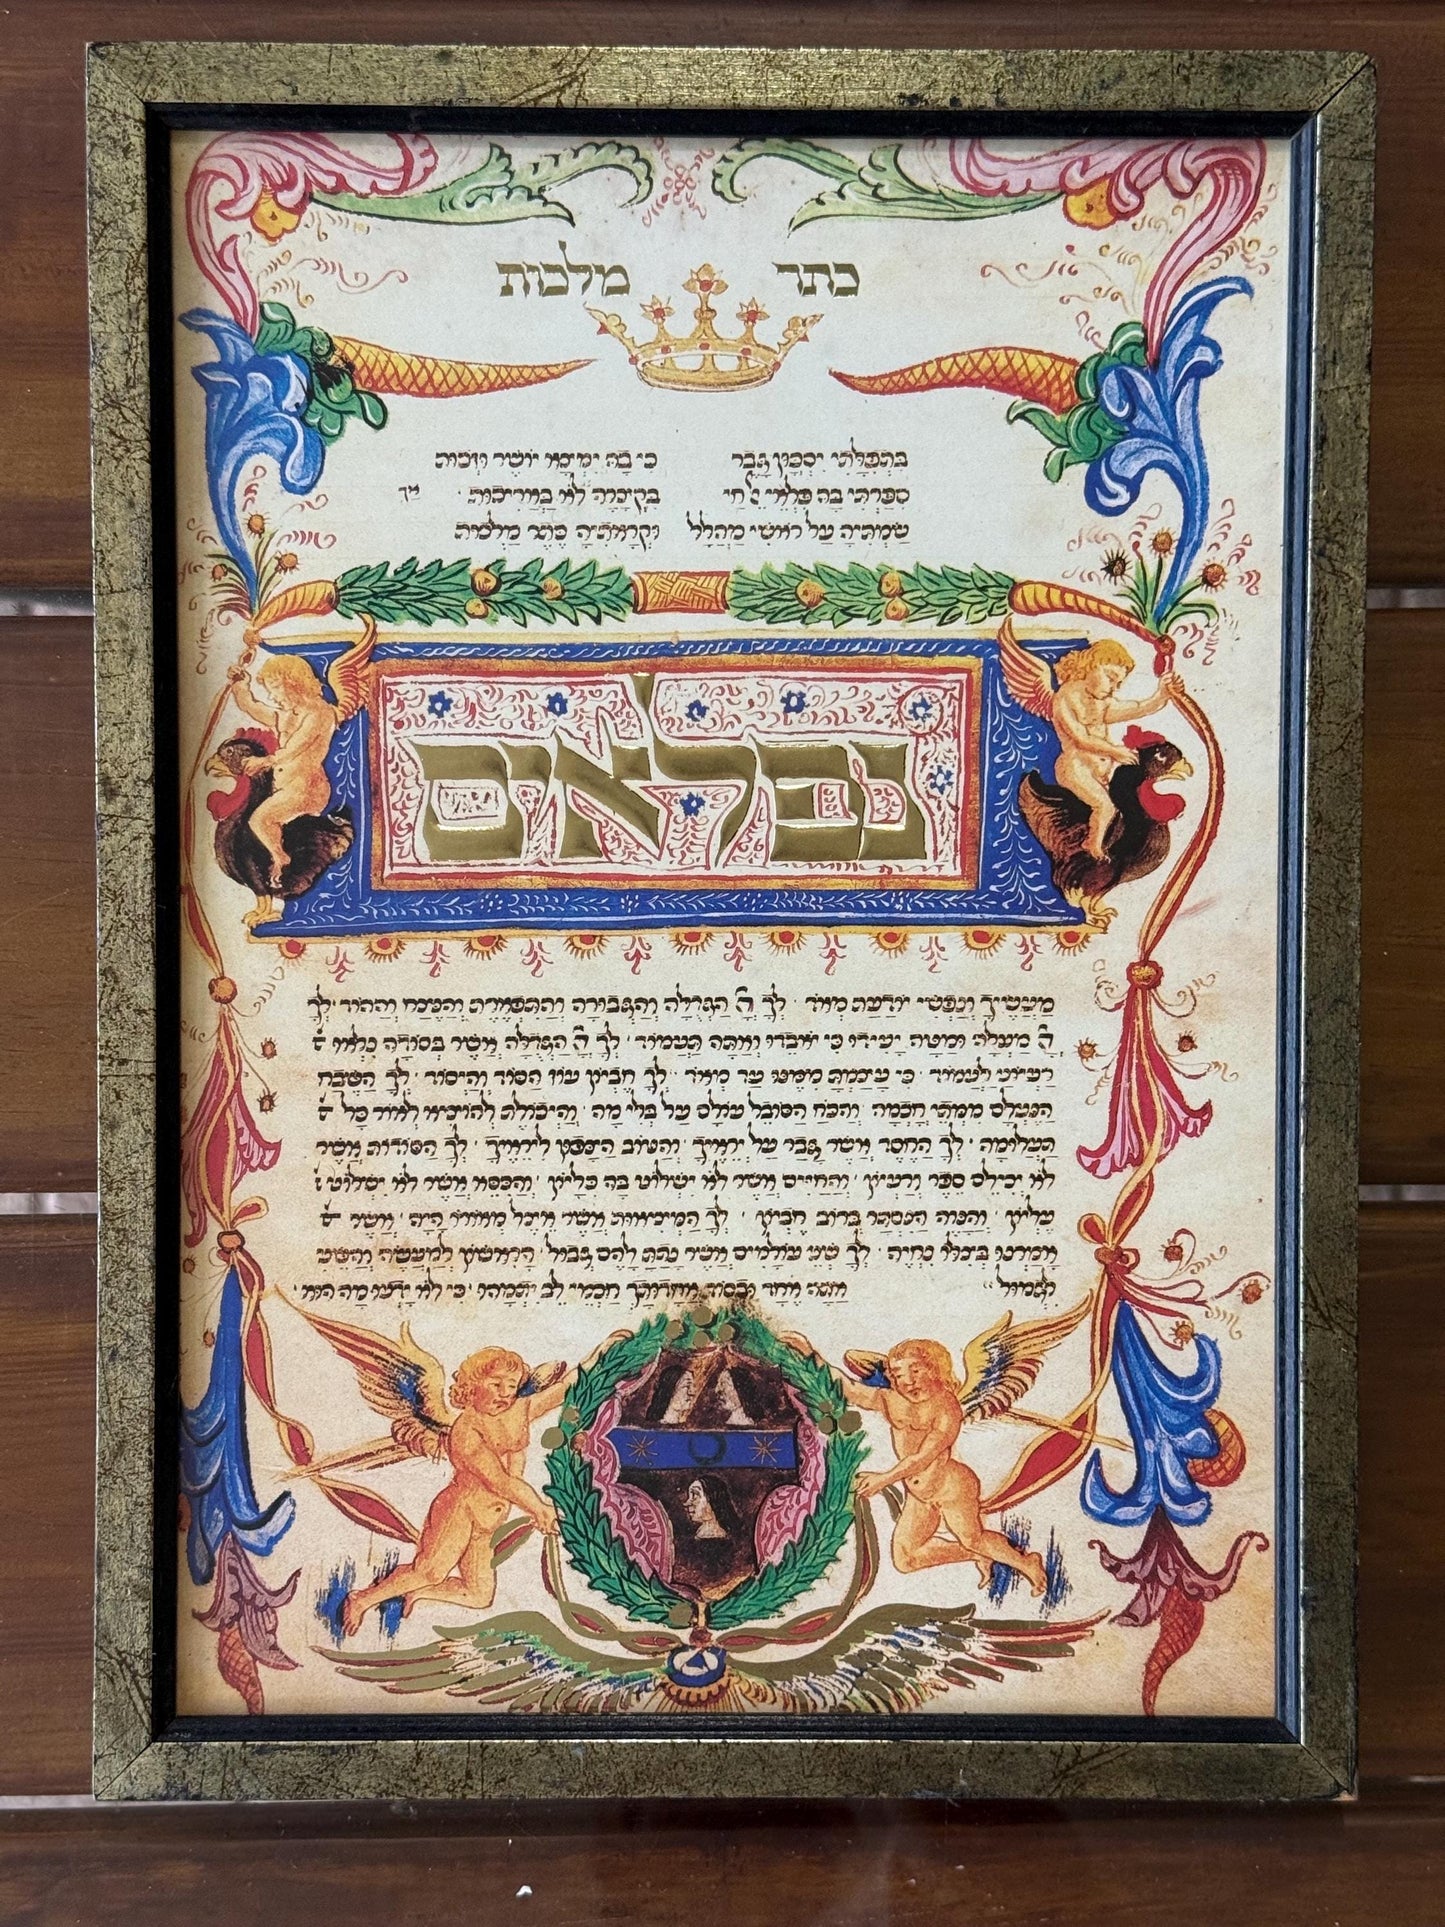 כתר מלכות
בתפלתי יסכון גבר כי בה ילמוד יושר וזכות
ספרתי בה פלאי אל חי בקצרה לא באריכות אך
שמתיה על ראשי מהללי וקראתיה כתר מלכות
נפלאים
מעשיך ונפשי יודעת מאוד · לך ה' הגדולה והגבורה והתפארת והנצח וההוד · לך
ה' מעלה ומטה יעידו כי יאבדו ואתה תעמוד · לך ה' הגדולה אשר בסודה נלאו
רעיוני לעמוד · כי עצמת ממנו עד מאוד · לך חביון עוז הסוד והיסוד · לך השם
הנעלם ממתי חכמה · והכח הסובל עולם על בלי מה · והיכולת להוציא לאור כל
תעלומה · לך החסד אשר גבר על יראיך · והטוב הצפון ליראיך · לך הסודות אשר
לא יכילם ספר ורעיון · והחיים אשר לא ישלוט בה כליון · והכסא אשר לא ישלוט
עליון · והנוה הנסתר ברום חביון · לך המציאות אשר מצל מאורו היה · אשר
אמרנו בצלו נחיה · לך שני עולמים אשר נתת להם גבול · הראשון למעשה והשני
לגמול · אתה אחד ובסוד אחדותך חכמי לב יתמהו · כי לא ידעו מה הוא ·